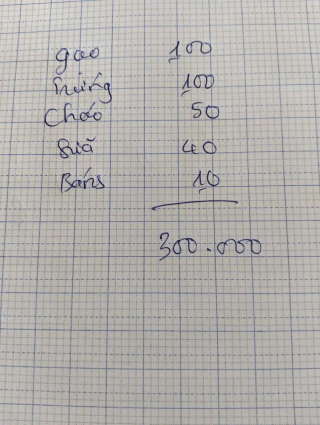 gạo 100
Trứng 100
Cháo 50
Sữa 40
Bánh 10
300.000